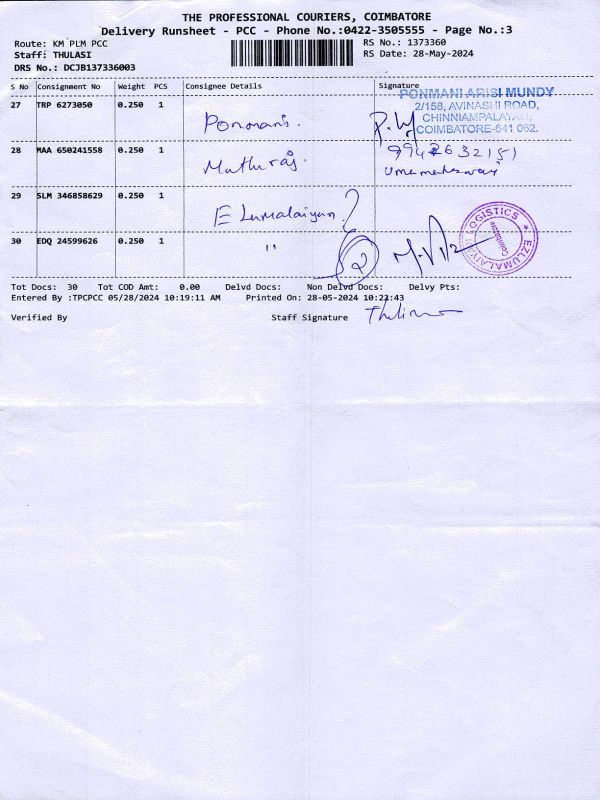 THE PROFESSIONAL COURIERS, COIMBATORE
Delivery Runsheet - PCC - Phone No.:0422-3505555 - Page No.:3
Route: KM PLM PCC
RS No.: 1373360
Staff: THULASI
RS Date: 28-May-2024
DRS No.: DCJB137336003
S No Consignment No Weight PCS Consignee Details Signature
PONMANI ARISI MUNDY
2/158, AVINASHI ROAD,
CHINNIAMPALAYAM,
COIMBATORE-641 062.
27 TRP 6273050 0.250 1 Ponmani.
28 MAA 650241558 0.250 1 Muthuraj.
Umamaheswari
29 SLM 346858629 0.250 1 Elumalaiyan
30 EDQ 24599626 0.250 1 " 2
EZLUMALAIYAN LOGISTICS ★
Coimbatore
Tot Docs: 30 Tot COD Amt: 0.00 Delvd Docs: Non Delvd Docs: Delvy Pts:
Entered By :TPCPCC 05/28/2024 10:19:11 AM Printed On: 28-05-2024 10:22:43
Verified By Staff Signature